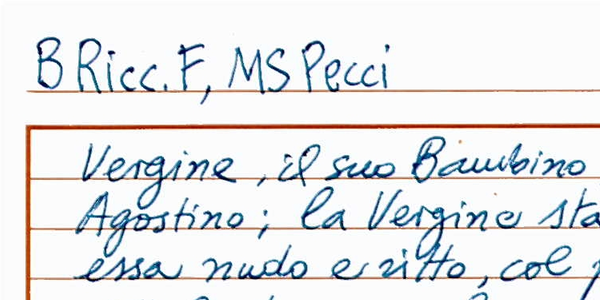 B Ricc. F, MS Pecci
Vergine, il suo Bambino
Agostino; la Vergine sta
essa nudo e ritto, col